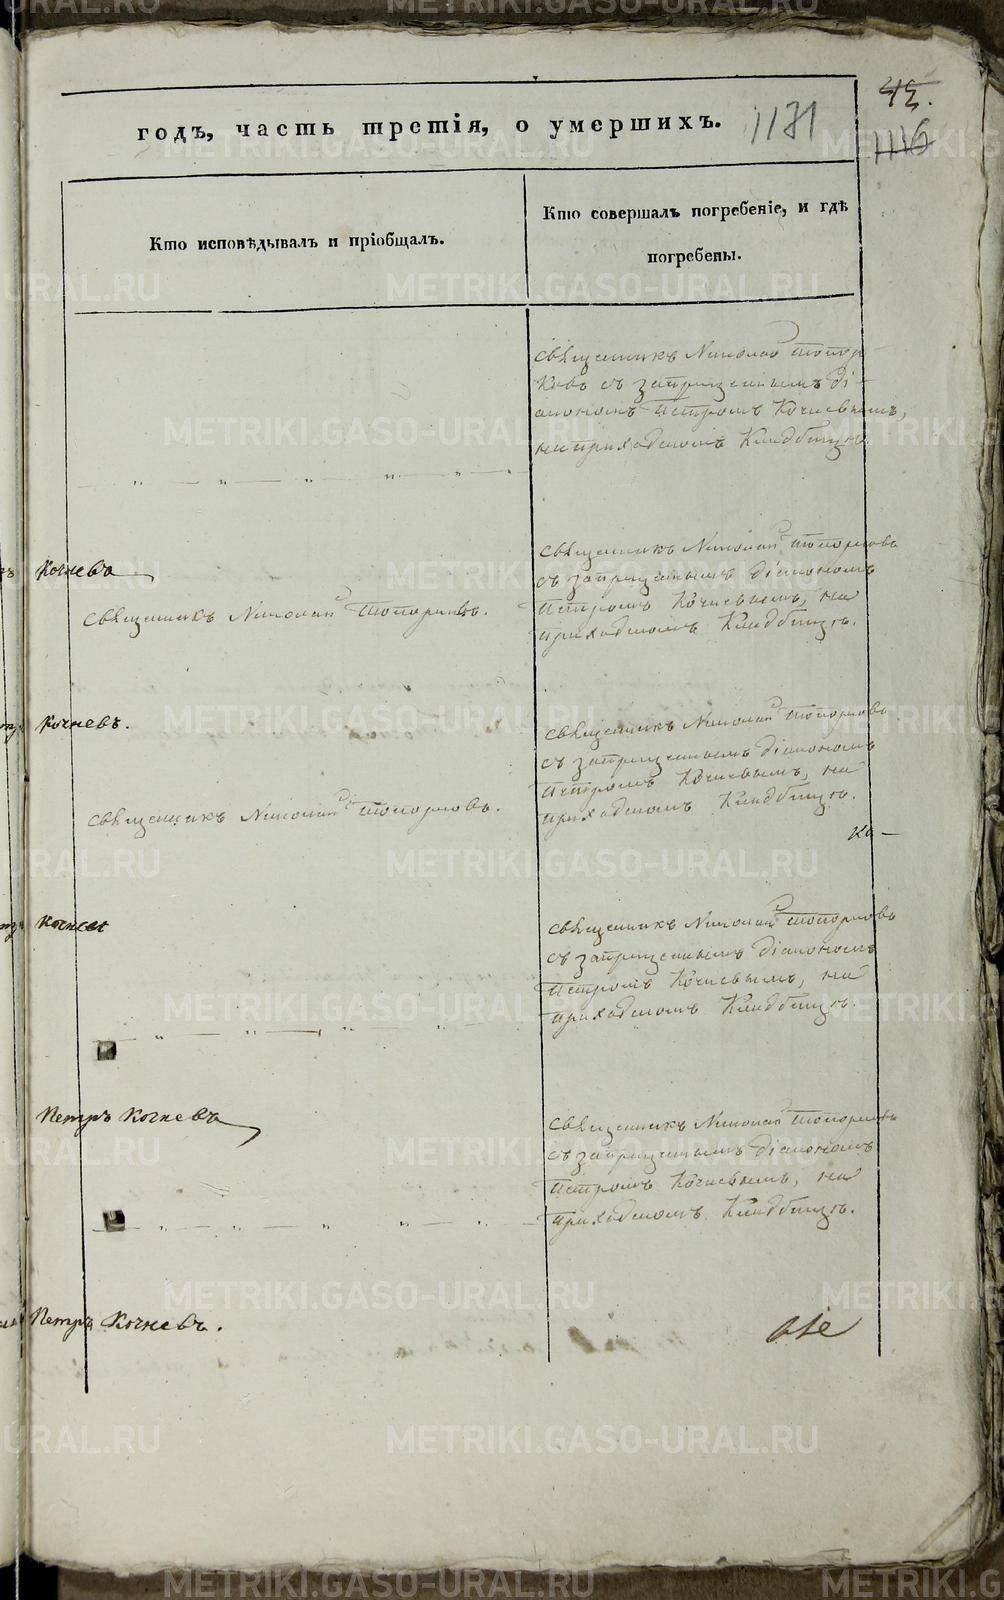 METRIKI.GASO-URAL.RU
42.
годъ, часть третія, о умершихъ. 1131
1116
Кто исповѣдывалъ и пріобщалъ.
Кто совершалъ погребеніе, и гдѣ
погребены.
священникъ Николай Топор
ковъ съ запрещеннымъ ді-
акономъ Петромъ Кочневымъ,
на приходскомъ кладбищѣ.
Кочневъ
священникъ Николай Топорковъ
съ запрещеннымъ діакономъ
Петромъ Кочневымъ, на
приходскомъ кладбищѣ.
священникъ Николай Топорковъ.
Кочневъ.
священникъ Николай Топорковъ
съ запрещеннымъ діакономъ
Петромъ Кочневымъ, на
приходскомъ кладбищѣ.
священникъ Николай Топорковъ.
Ко-
Кочневъ
священникъ Николай Топорковъ
съ запрещеннымъ діакономъ
Петромъ Кочневымъ, на
приходскомъ кладбищѣ.
Петръ Кочневъ
священникъ Николай Топорковъ
съ запрещеннымъ діакономъ
Петромъ Кочневымъ, на
приходскомъ кладбищѣ.
Петръ Кочневъ.